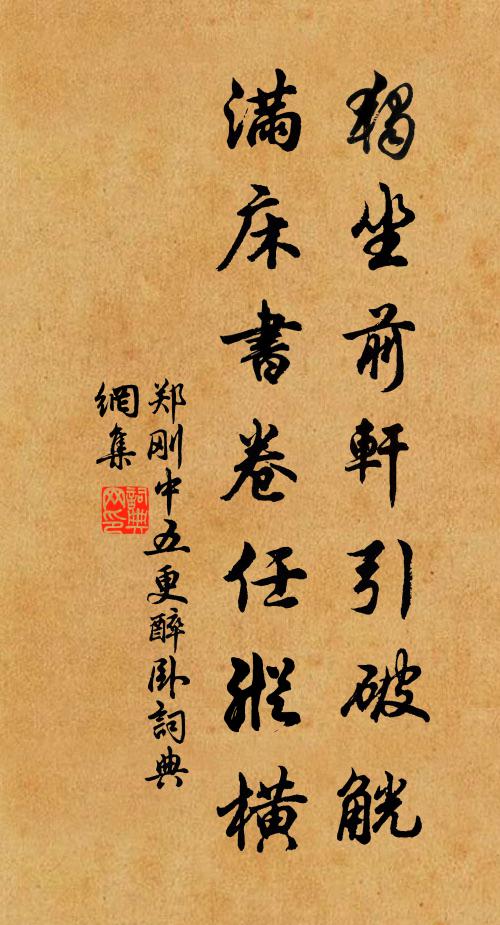 獨坐前軒引破觥
滿床書卷任縱橫
郑刚中五更醉卧詞典
網集
詞典網印